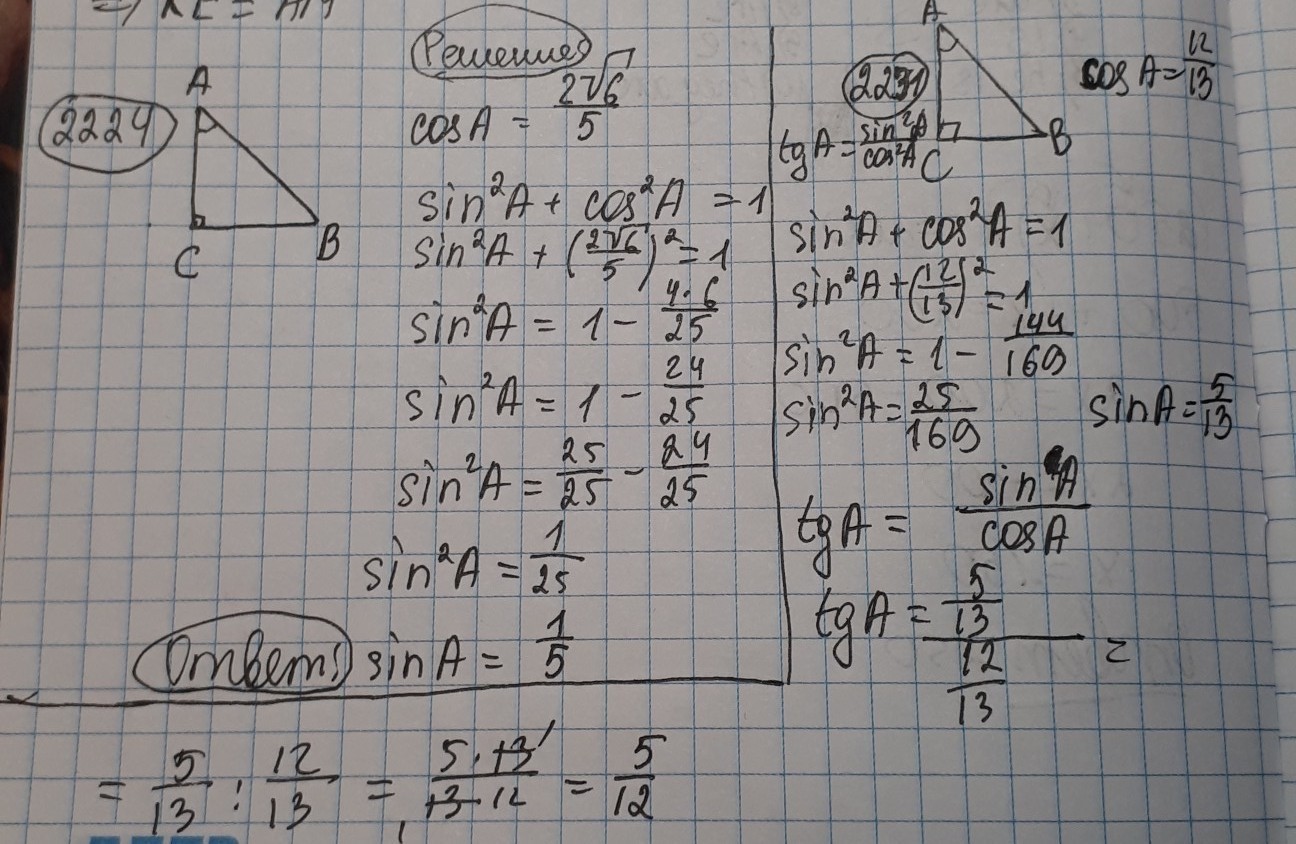 ⇒ KE = AM
Решение
2224
A
C
B
cosA = 2√6/5
sin²A + cos²A = 1
sin²A + (2√6/5)² = 1
sin²A = 1 − 4·6/25
sin²A = 1 − 24/25
sin²A = 25/25 − 24/25
sin²A = 1/25
Ответ: sinA = 1/5
A
2231
C
B
cosA = 12/13
tgA = sin²A/cos²A
sin²A + cos²A = 1
sin²A + (12/13)² = 1
sin²A = 1 − 144/169
sin²A = 25/169 sinA = 5/13
tgA = sinA/cosA
tgA = 5/13 / 12/13 =
= 5/13 : 12/13 = 5·13/13·12 = 5/12